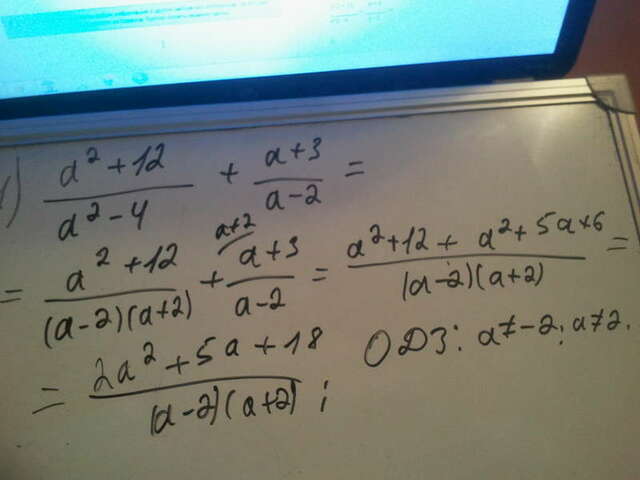 1) (a² + 12)/(a² - 4) + (a + 3)/(a - 2) =
= (a² + 12)/((a - 2)(a + 2)) + (a+2 (a + 3))/(a - 2) = (a² + 12 + a² + 5a + 6)/((a - 2)(a + 2)) =
= (2a² + 5a + 18)/((a - 2)(a + 2)) ; ОДЗ: a ≠ -2; a ≠ 2.